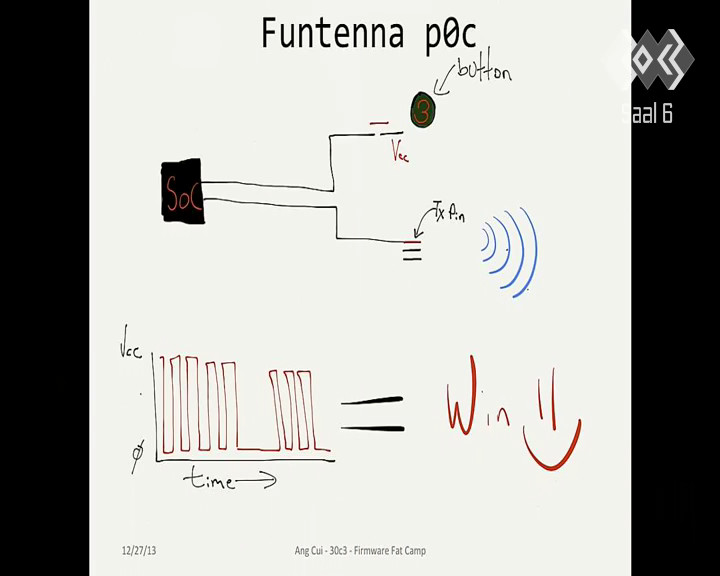 Funtenna p0c
button
3
Saal 6
Vcc
SoC
Tx Pin
Vcc
Win
0
time
12/27/13
Ang Cui - 30c3 - Firmware Fat Camp